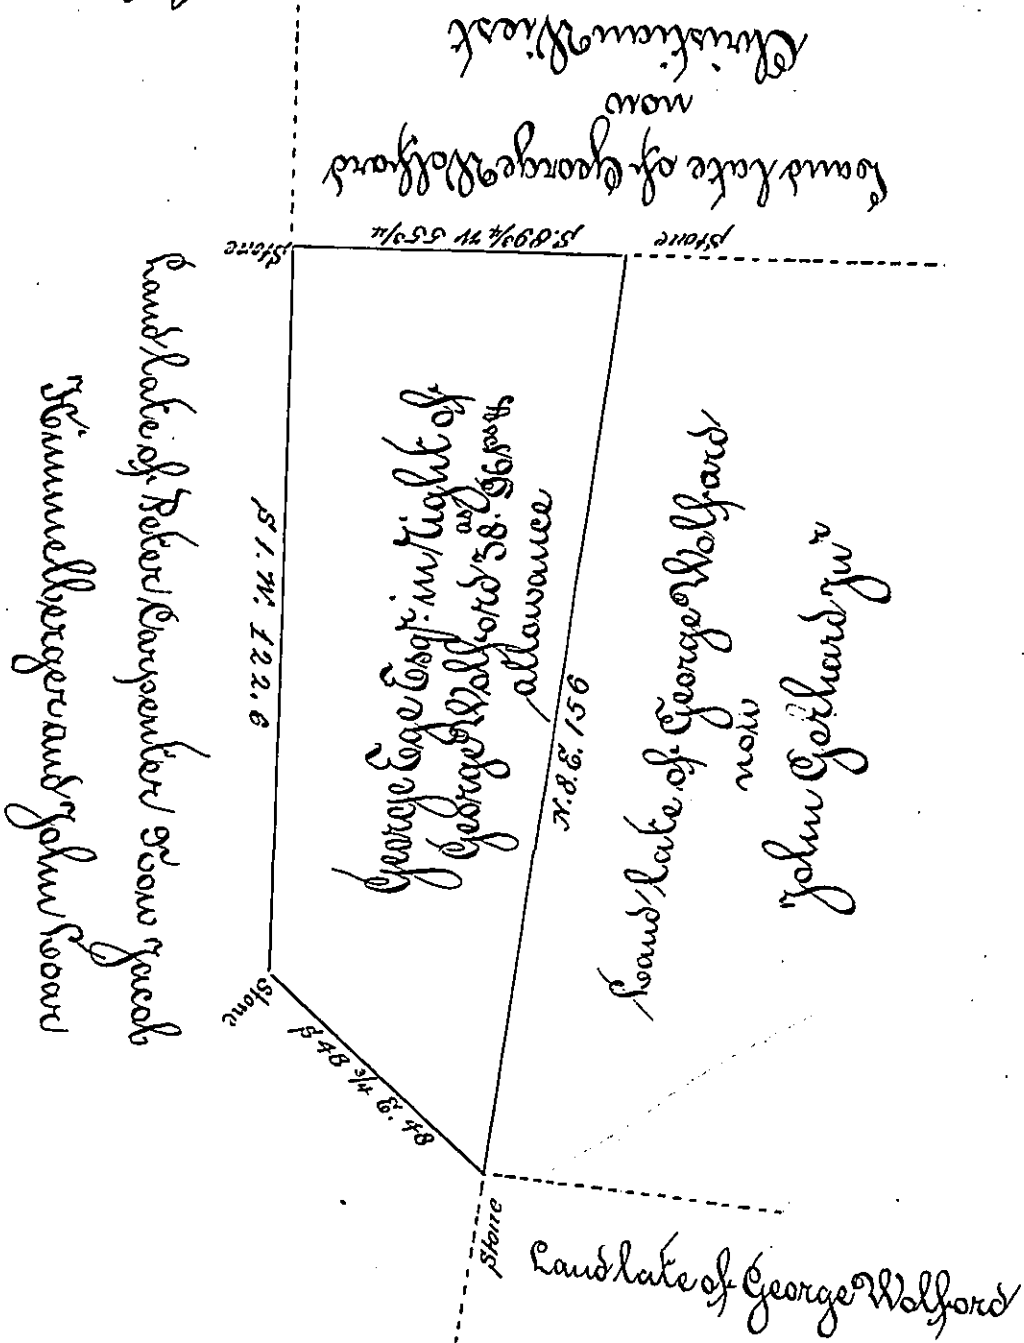 Land late of George Wolfard
now
Christian Wiest
Stone
S. 89 3/4 W 55 3/4
Stone
Land late of Peter Carpenter Now Jacob
Kimmelberger and John Loar
S 1. W. 122.6
George Ege Esqr. in Right of
George Wolford 38. as 96 ps &
allowance
N. 8. E. 156
Land late of George Wolfard
now
John Gerhard Junr
Stone
S 48 3/4 E. 48
Stone
Land late of George Wolford